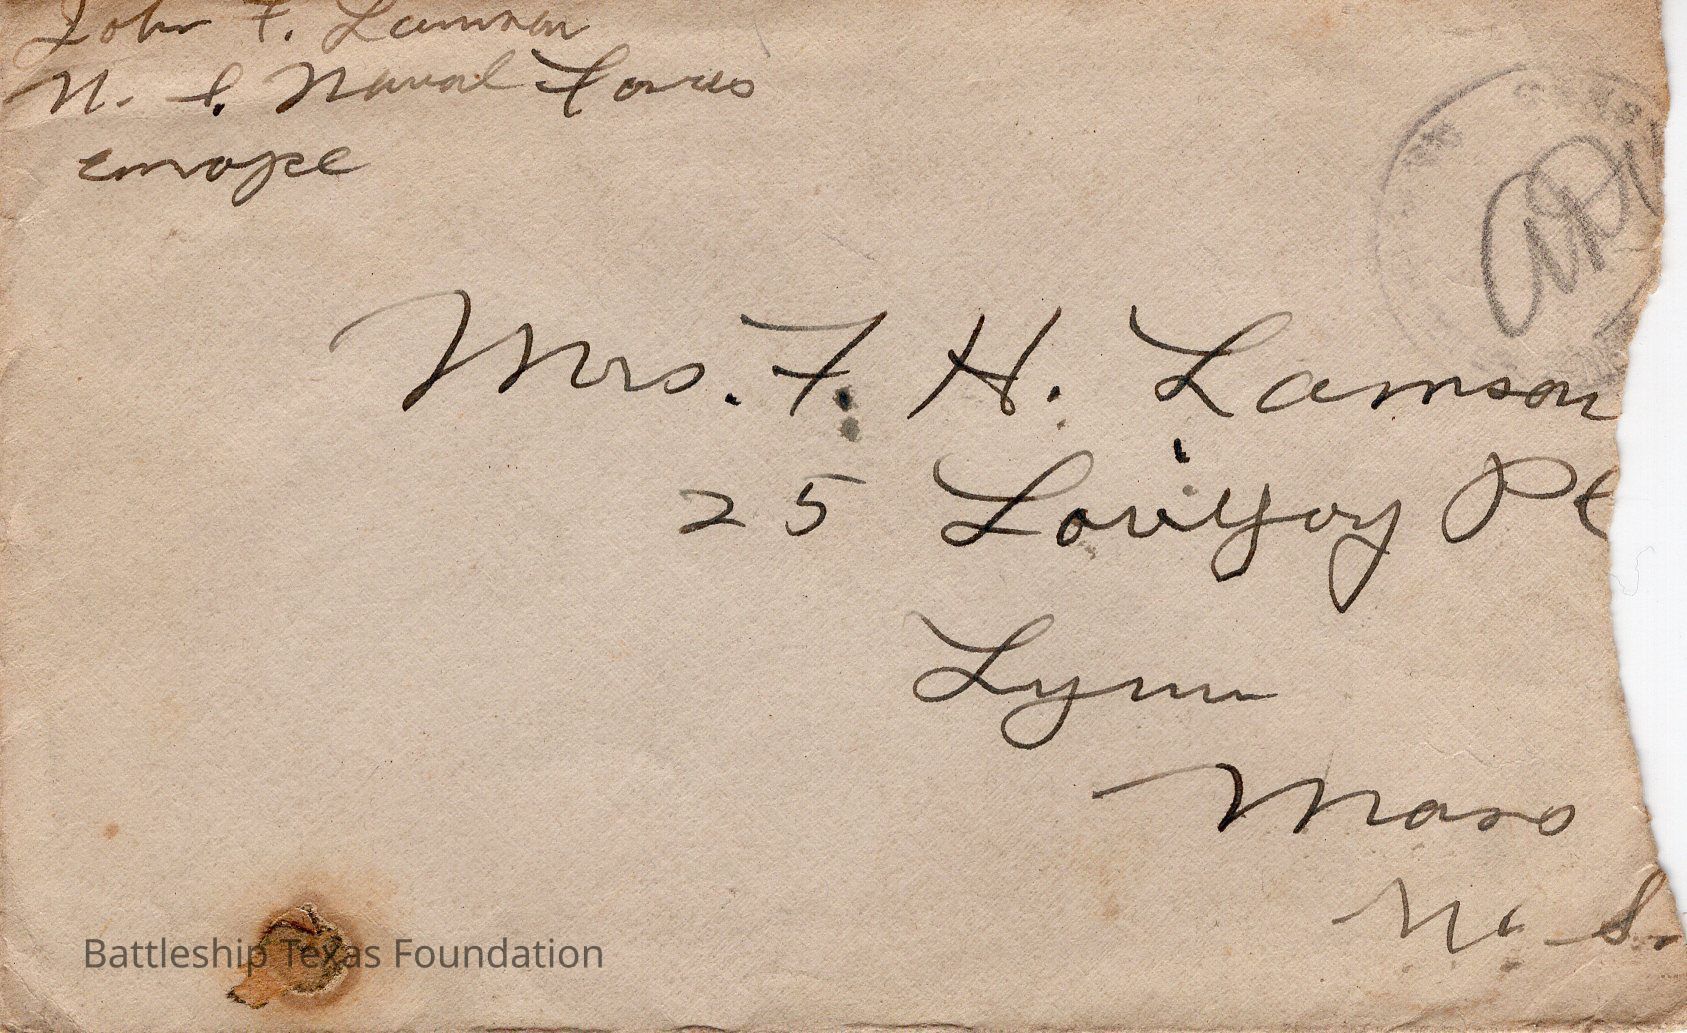 John F. Lamson
U. S. Naval Forces
Europe
Mrs. F. H. Lamson
25 Lovejoy Pl
Lynn
Mass
U. S.
Battleship Texas Foundation